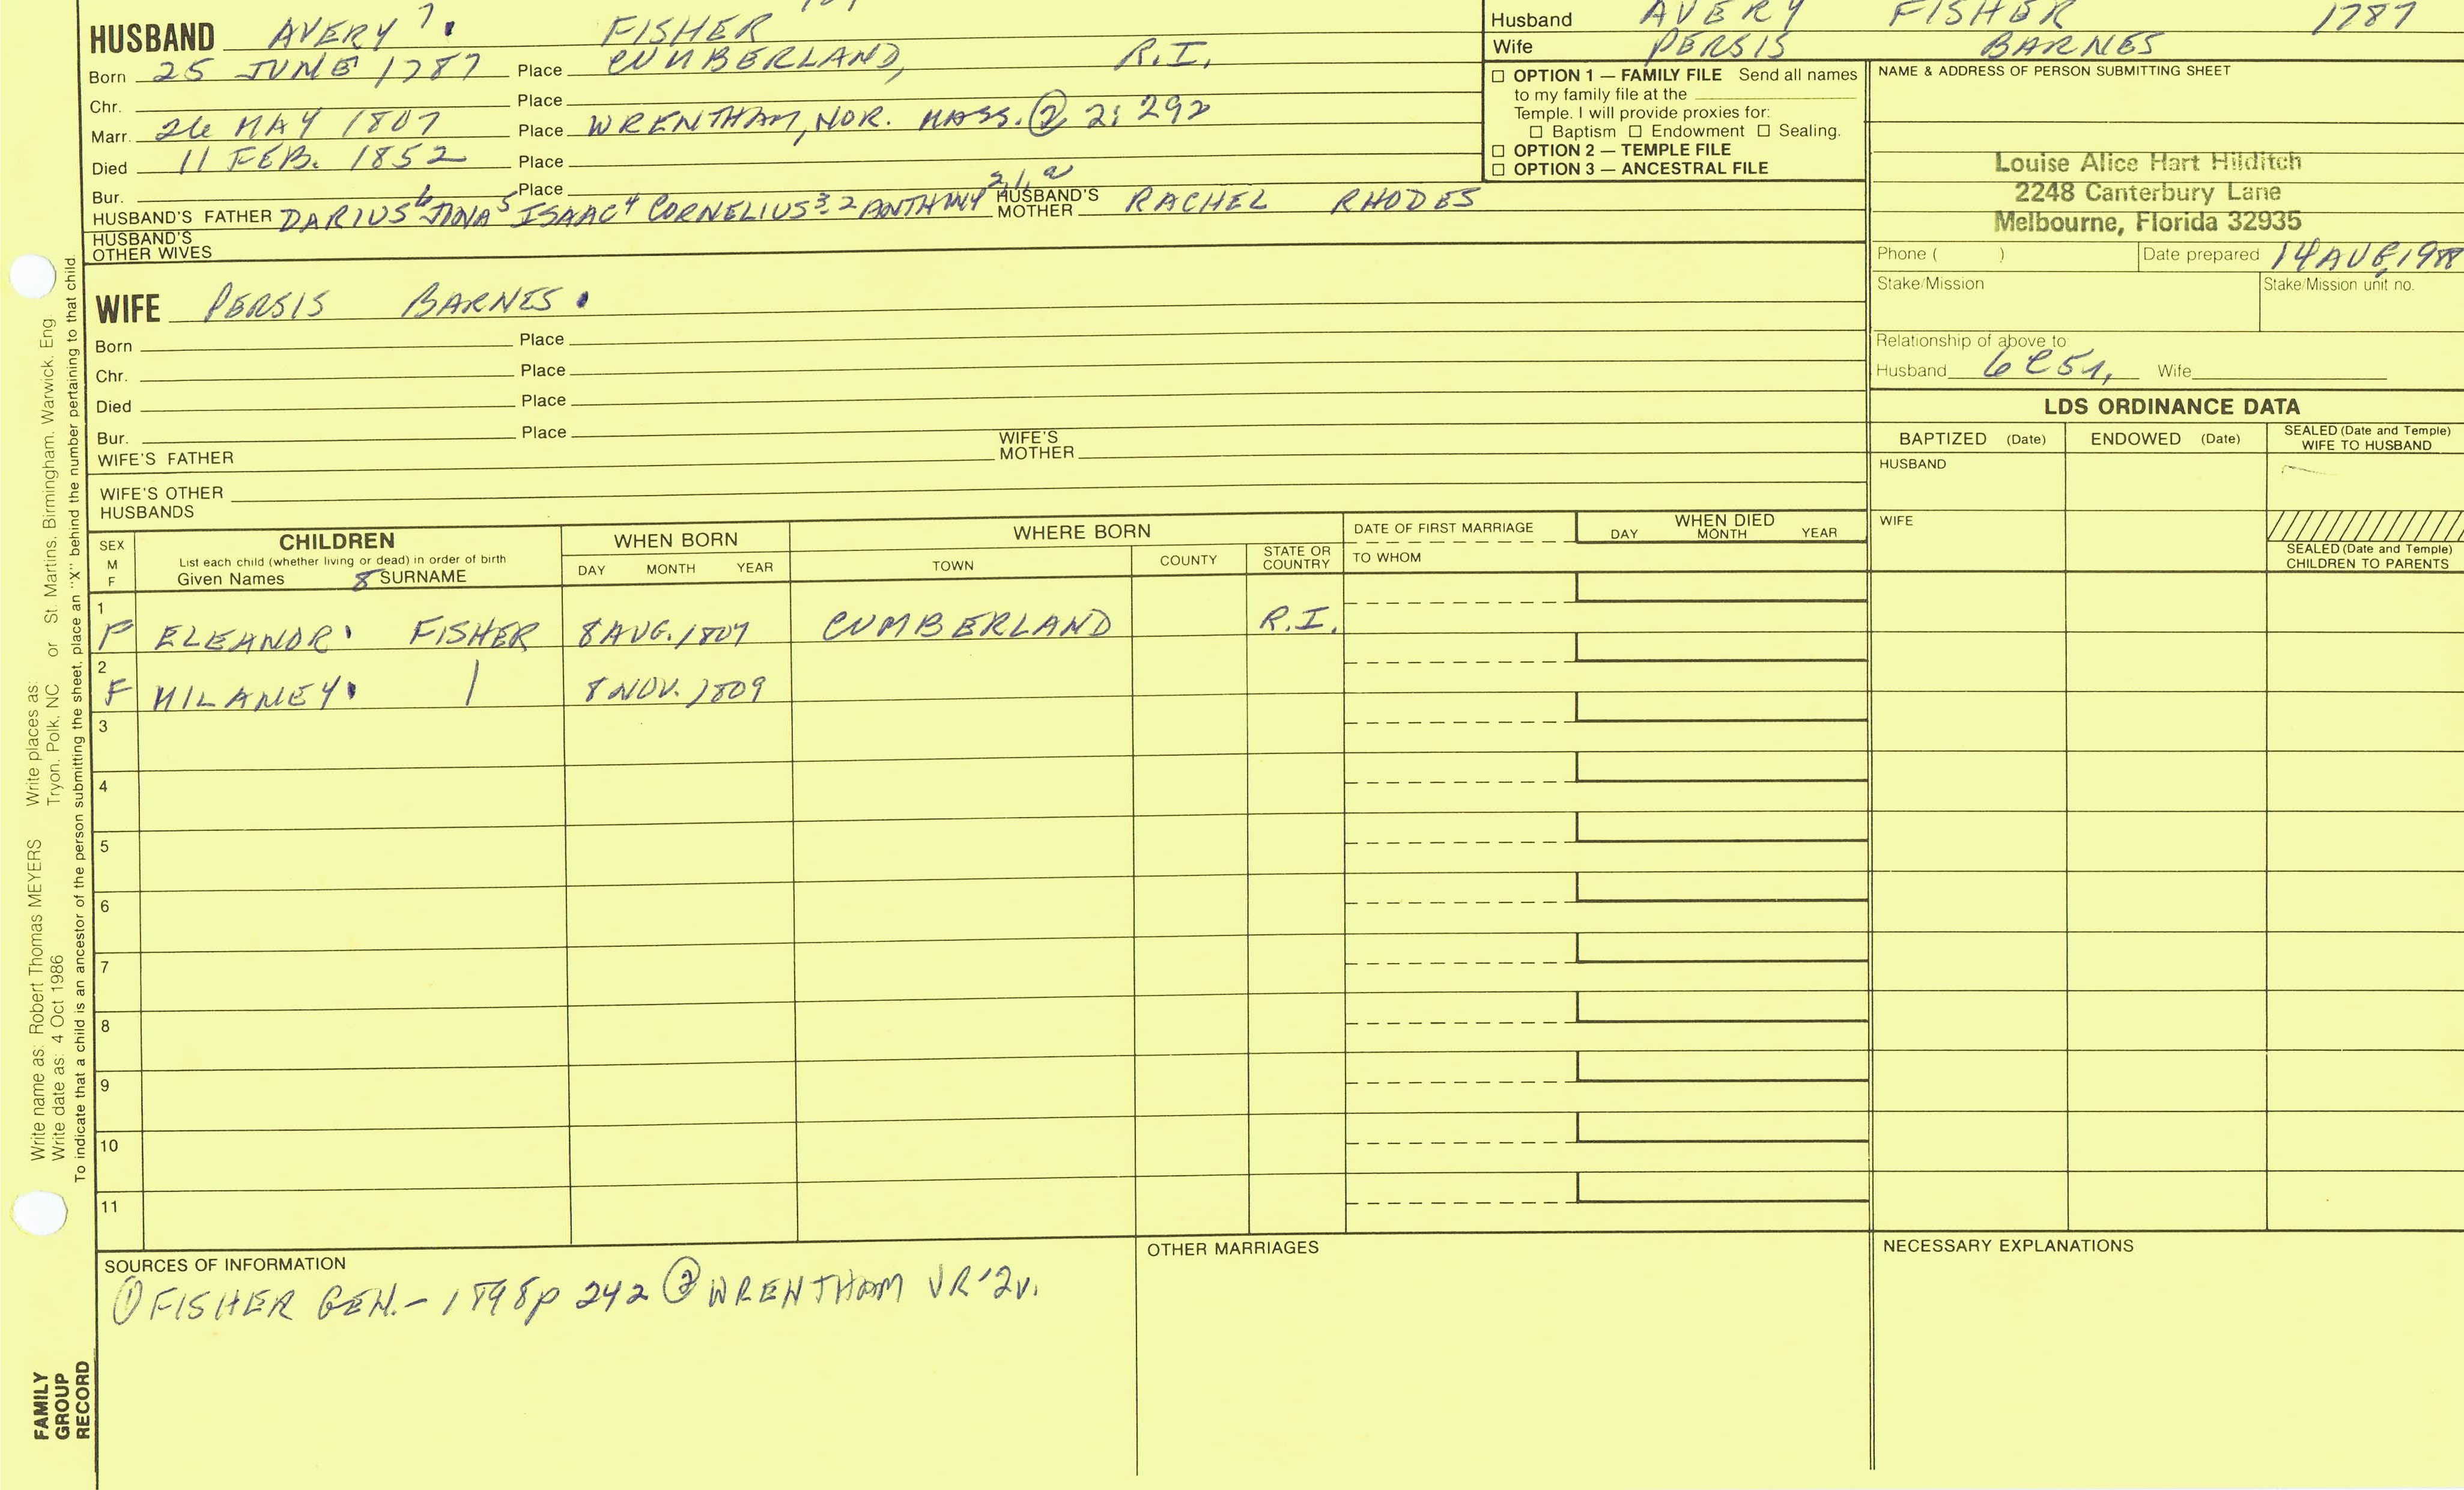 HUSBAND AVERY 7. FISHER
Born 25 JUNE 1787 Place CUMBERLAND, R.I.
Chr. Place
Marr. 26 MAY 1807 Place WRENTHAM, NOR. MASS. ② 2: 292
Died 11 FEB. 1852 Place
Bur. Place
HUSBAND'S FATHER DARIUS 6 JONA 5 ISAAC 4 CORNELIUS 3, 2 ANTHONY 2, 1, a HUSBAND'S MOTHER RACHEL RHODES
HUSBAND'S OTHER WIVES
Husband AVERY FISHER 1787
Wife PERSIS BARNES
☐ OPTION 1 — FAMILY FILE Send all names
to my family file at the
Temple. I will provide proxies for:
☐ Baptism ☐ Endowment ☐ Sealing.
☐ OPTION 2 — TEMPLE FILE
☐ OPTION 3 — ANCESTRAL FILE
NAME & ADDRESS OF PERSON SUBMITTING SHEET
Louise Alice Hart Hilditch
2248 Canterbury Lane
Melbourne, Florida 32935
Phone ( ) Date prepared 14 AUG 1988
Stake/Mission Stake/Mission unit no.
Relationship of above to
Husband 6C5r, Wife
WIFE PERSIS BARNES.
Born Place
Chr. Place
Died Place
Bur. Place
WIFE'S FATHER WIFE'S MOTHER
WIFE'S OTHER HUSBANDS
LDS ORDINANCE DATA
BAPTIZED (Date) ENDOWED (Date) SEALED (Date and Temple) WIFE TO HUSBAND
HUSBAND
WIFE
SEALED (Date and Temple) CHILDREN TO PARENTS
SEX M F
CHILDREN
List each child (whether living or dead) in order of birth
Given Names 8 SURNAME
WHEN BORN
DAY MONTH YEAR
WHERE BORN
TOWN COUNTY STATE OR COUNTRY
DATE OF FIRST MARRIAGE
TO WHOM
WHEN DIED
DAY MONTH YEAR
1
F ELEANOR. FISHER 8 AUG. 1807 CUMBERLAND R.I.
2
F MILANEY. 8 NOV. 1809
3
4
5
6
7
8
9
10
11
SOURCES OF INFORMATION
① FISHER GEN. - 1898 p 242 ② WRENTHAM VR '2v.
OTHER MARRIAGES
NECESSARY EXPLANATIONS
Write name as: Robert Thomas MEYERS Write places as:
Write date as: 4 Oct 1986 Tryon, Polk, NC or St. Martins, Birmingham, Warwick, Eng
To indicate that a child is an ancestor of the person submitting the sheet, place an "X" behind the number pertaining to that child.
FAMILY
GROUP
RECORD